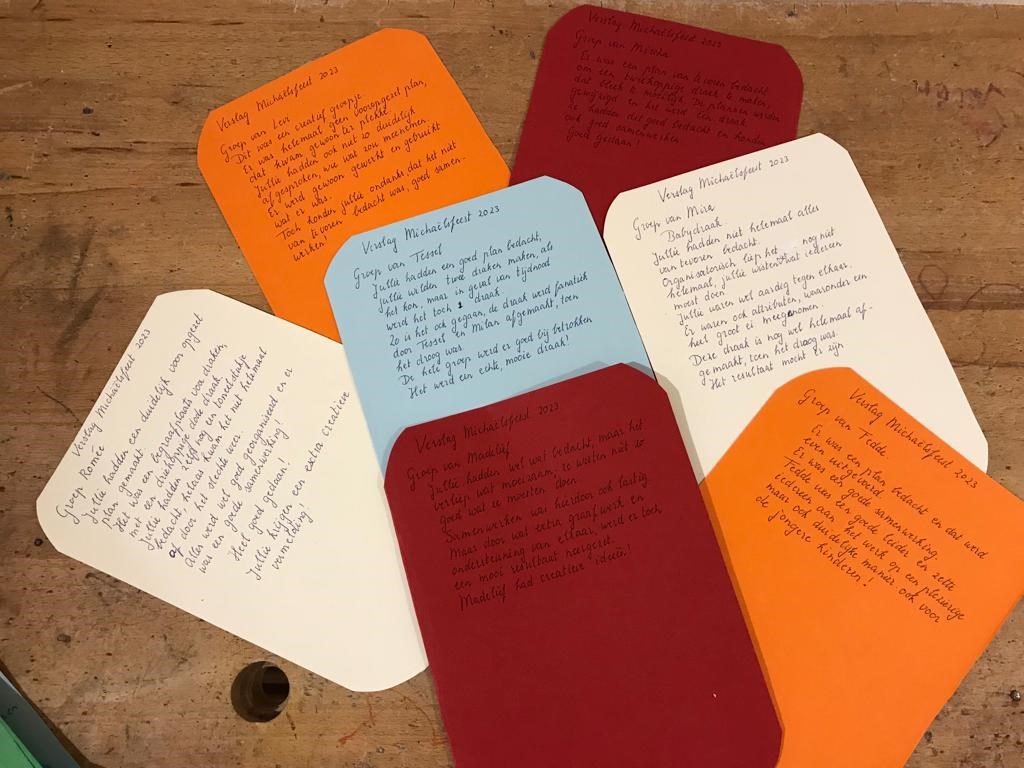 Verslag Michaëlsfeest 2023
Groep van Levi
Dit was een creatief groepje.
Er was helemaal geen vooropgezet plan,
dat kwam gewoon ter plekke.
Jullie hadden ook niet zo duidelijk
afgesproken, wie wat zou meenemen.
Er werd gewoon gewerkt en gebruikt
wat er was.
Toch konden jullie ondanks dat het niet
van tevoren bedacht was, goed samen-
werken!
Verslag Michaëlsfeest 2023
Groep van Mischa
Er was een plan van te voren bedacht
om een tweekoppige draak te maken,
dat bleek te moeilijk. De plannen werden
gewijzigd en het werd één draak
Ze hadden dit goed bedacht en konden
ook goed samenwerken
Goed gedaan!
Verslag Michaëlsfeest 2023
Groep van Tessel
Jullie hadden een goed plan bedacht,
jullie wilden twee draken maken, als
het kon, maar in geval van tijdnood
werd het toch 1 draak.
Zo is het ook gegaan, de draak werd fanatiek
door Tessel en Milan afgemaakt, toen
het droog was.
De hele groep werd er goed bij betrokken
Het werd een echte, mooie draak!
Verslag Michaëlsfeest 2023
Groep van Mira
Babydraak
Jullie hadden niet helemaal alles
van tevoren bedacht.
Organisatorisch liep het nog niet
helemaal, jullie wisten wat iedereen
moest doen
Jullie waren wel aardig tegen elkaar.
Er waren ook attributen, waaronder een
heel groot ei meegenomen.
Deze draak is nog wel helemaal af-
gemaakt, toen het droog was.
Het resultaat mocht er zijn
Verslag Michaëlsfeest 2023
Groep Renée
Jullie hadden een duidelijk van opgezet
plan gemaakt
Het was een begraafplaats voor draken,
met een driekoppige dode draak
Jullie hadden zelf nog een toneelstukje
bedacht, helaas kwam het niet helemaal
af door het slechte weer.
Alles werd wel goed georganiseerd en er
was een goede samenwerking!
Heel goed gedaan!
Jullie krijgen een extra creatieve
vermelding!
Verslag Michaëlsfeest 2023
Groep van Madelief
Jullie hadden wel wat bedacht, maar het
verliep wat moeizaam, ze wisten niet zo
goed wat ze moesten doen
Samenwerken was hierdoor ook lastig.
Maar door wat extra graafwerk en
ondersteuning van elkaar, werd er toch
een mooi resultaat neergezet.
Madelief had creatieve ideeën!
Verslag Michaëlsfeest 2023
Groep van Tedde
Er was een plan bedacht en dat werd
even uitgevoerd.
Er was een goede samenwerking
Tedde was een goede leider en zette
iedereen aan het werk op een plezierige
maar ook duidelijke manier ook voor
de jongere kinderen!